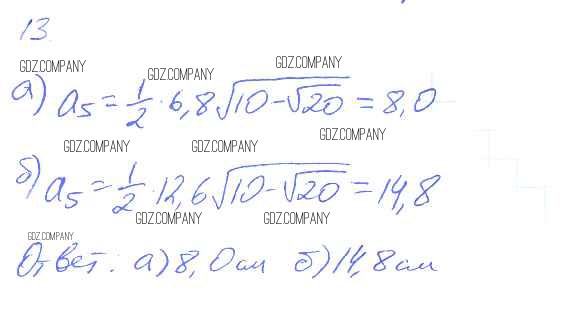 13.
GDZ.COMPANY GDZ.COMPANY GDZ.COMPANY
а) a₅ = 1/2 · 6,8√(10 − √20) = 8,0
GDZ.COMPANY GDZ.COMPANY GDZ.COMPANY
б) a₅ = 1/2 · 12,6√(10 − √20) = 14,8
GDZ.COMPANY GDZ.COMPANY
GDZ.COMPANY
Ответ: а) 8,0см б) 14,8см